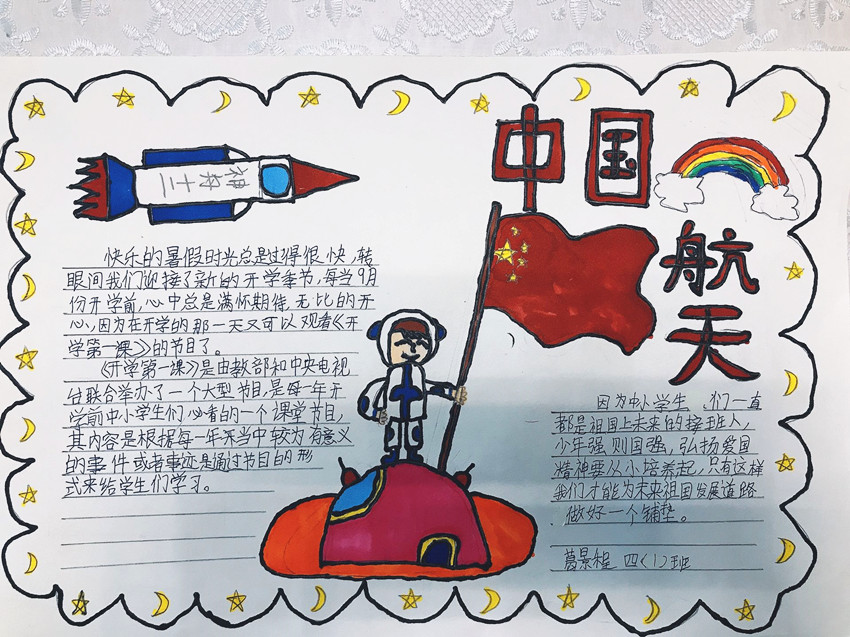 中国
航天
神舟十二
快乐的暑假时光总是过得很快,转
眼间我们迎接了新的开学季节,每当9月
份开学前,心中总是满怀期待,无比的开
心,因为在开学的那一天又可以观看《开
学第一课》的节目了。
《开学第一课》是由教部和中央电视
台联合举办了一个大型节目,是每一年开
学前中小学生们必看的一个课堂节目,
其内容是根据每一年来当中较为有意义
的事件或者事迹是通过节目的形
式来给学生们学习。
因为中小学生们一直
都是祖国上未来的接班人,
少年强则国强,弘扬爱国
精神要从小培养起,只有这样
我们才能为未来祖国发展道路
做好一个铺垫。
葛景程 四(1)班